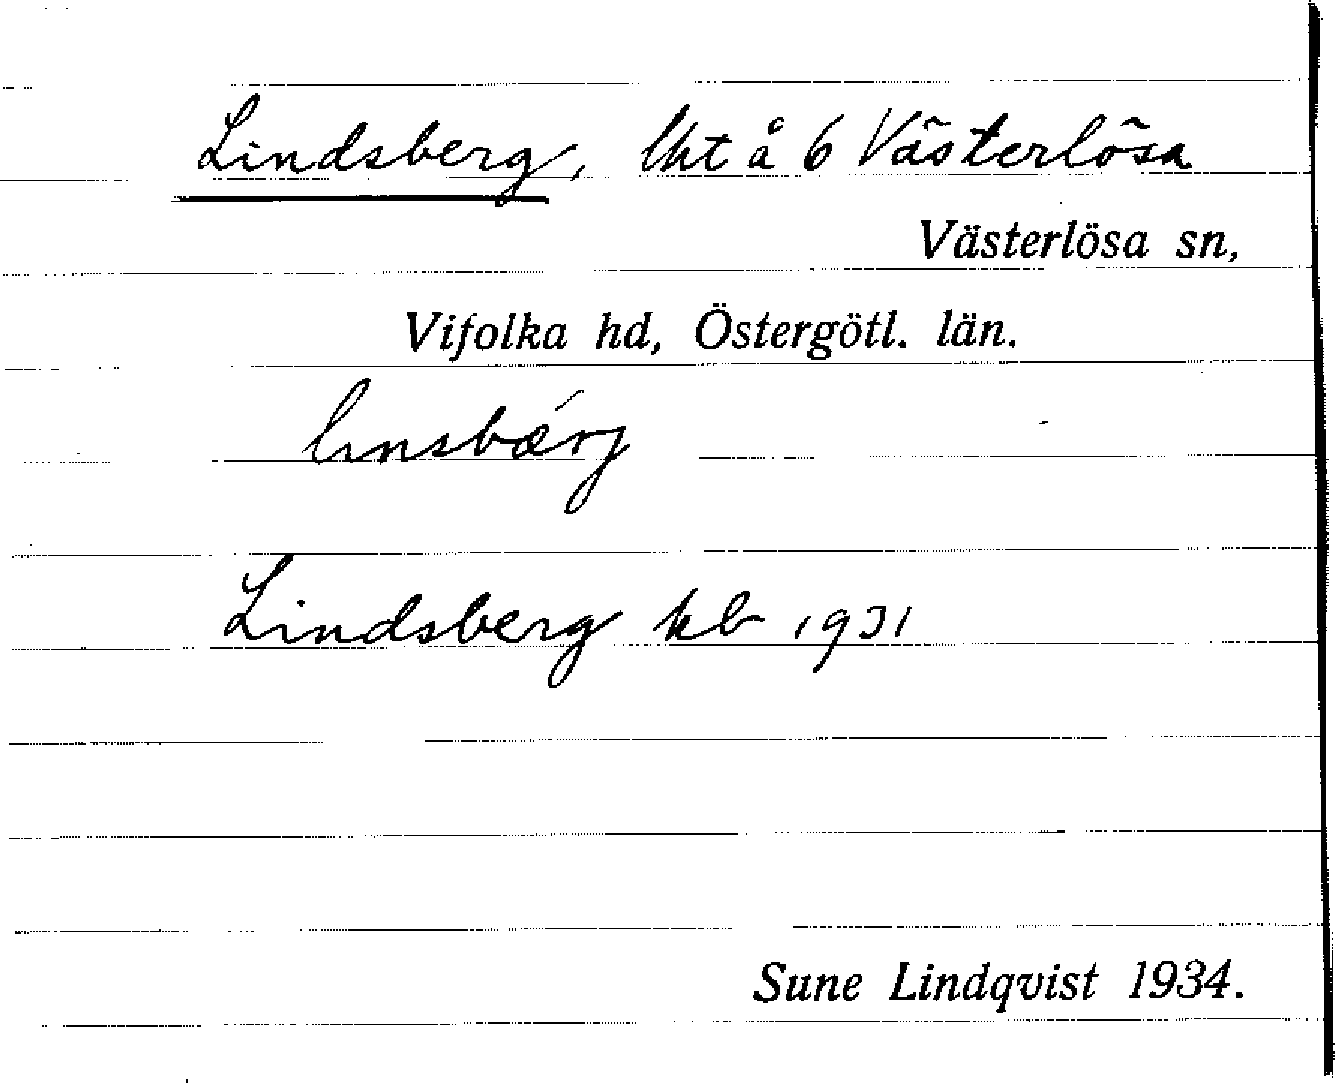 Lindsberg, lht å 6 Västerlösa
Västerlösa sn,
Vifolka hd, Östergötl. län.
linsbǽrj
Lindsberg kb 1931
Sune Lindqvist 1934.